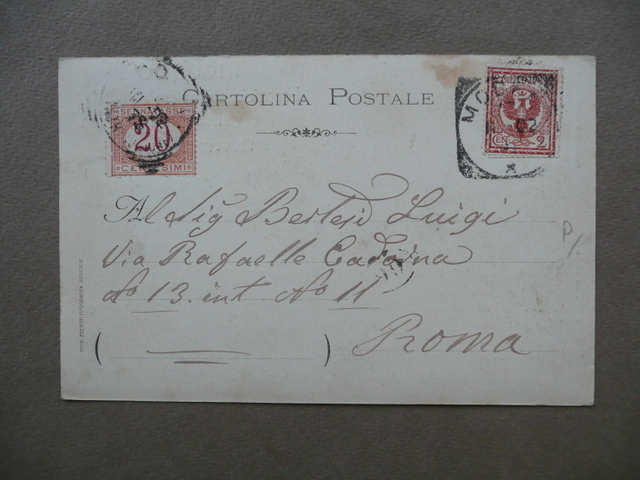 CARTOLINA POSTALE
SEGNATASSE
20
CENTESIMI
2
Al Sig Berlesi Luigi
Via Rafaelle Cadorna
No 13. int No 11
( )
Roma